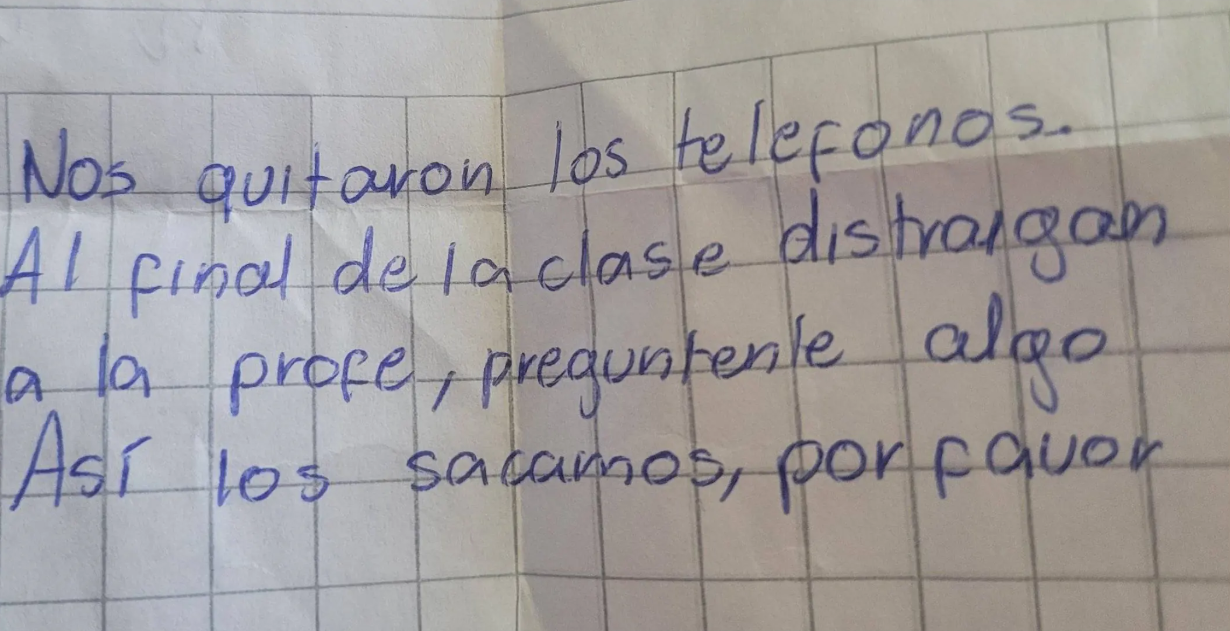 Nos quitaron los telefonos.
Al final de la clase distraigan
a la profe, preguntenle algo
Así los sacamos, por favor